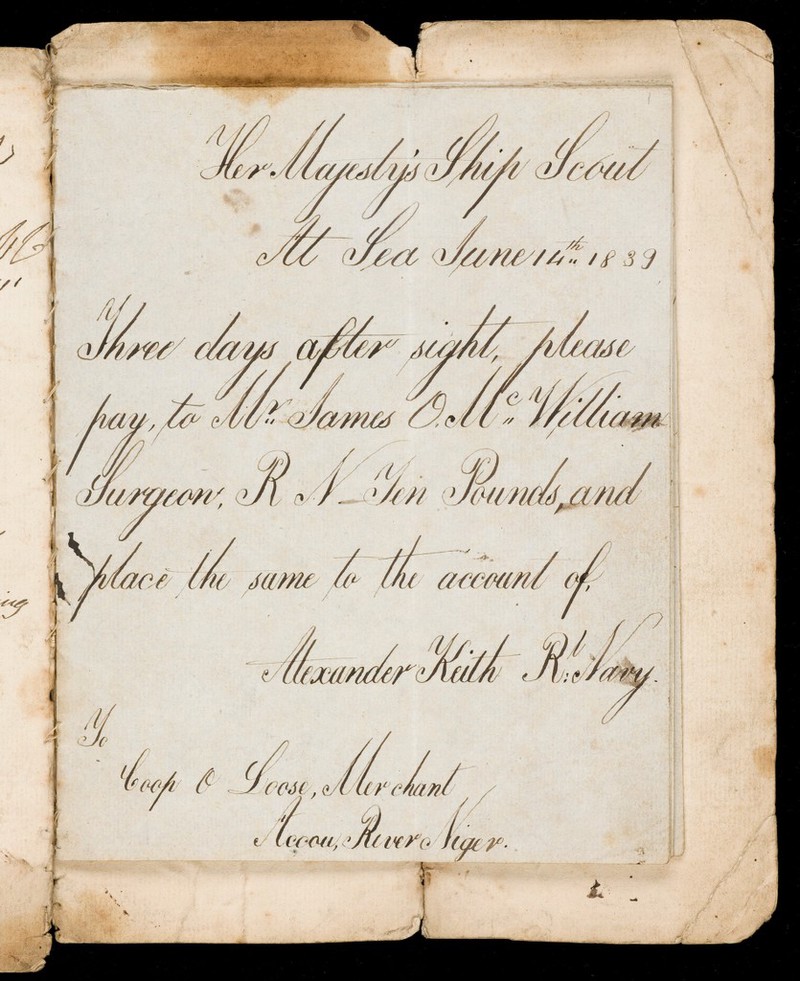 Her Majesty's Ship Scout
At Sea June 14th 1839
Three days after sight, please
pay, to Mr. James O. Mc. William
Surgeon, R N – Ten Pounds, and
place the same to the account of,
Alexander Keith Rl. Navy.
To
Coop O Loose, Merchant
Accou, River Niger.
ing